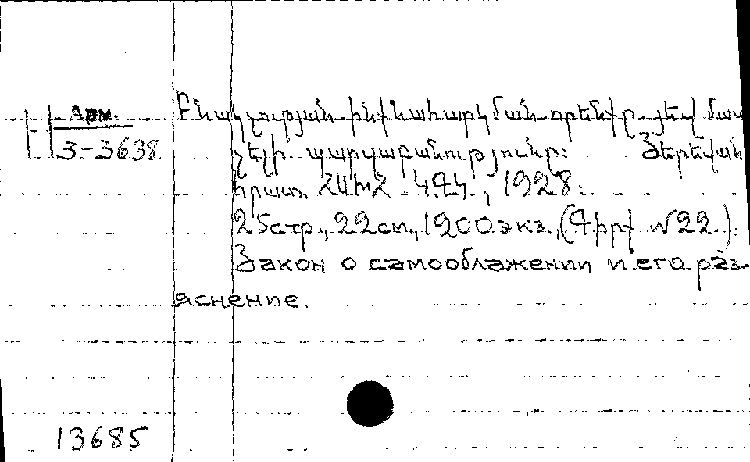 Арм.
3-3638
Բնակչության ինքնահարկման որենքը յեվ նրա
պարզաբանությունը: Յերեվան
հրատ. ՀՍԽՀ ԿԳԿ, 1928.
25стр., 22см, 1200экз., (Գիրք №22).
Закон о самообложении и его раз-
яснение.
13685